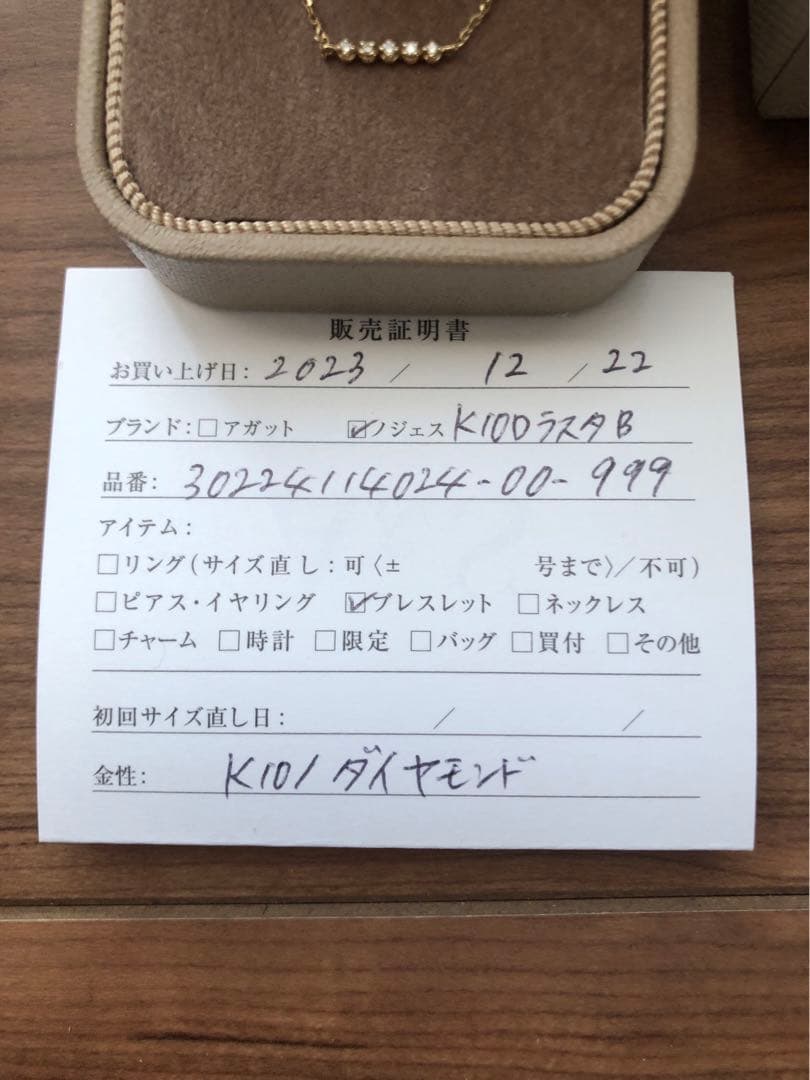 販売証明書
お買い上げ日: 2023 / 12 / 22
ブランド: □ アガット ☑ ノジェス K10DラスタB
品番: 30224114024-00-999
アイテム:
□リング(サイズ直し: 可〈± 号まで〉/不可)
□ピアス・イヤリング ☑ブレスレット □ネックレス
□チャーム □時計 □限定 □バッグ □買付 □その他
初回サイズ直し日: / /
金性: K10/ダイヤモンド